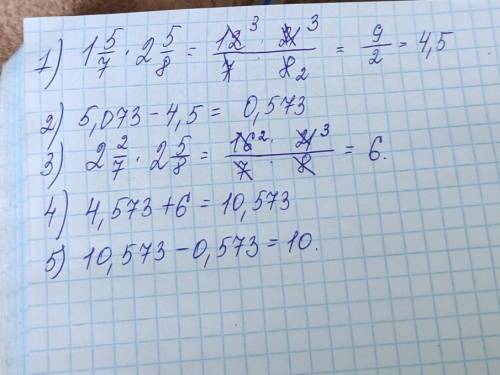 1) 1 5/7 · 2 5/8 = 12³ · 21³ / 7 · 8₂ = 9/2 = 4,5
2) 5,073 - 4,5 = 0,573
3) 2 2/7 · 2 5/8 = 16² · 21³ / 7 · 8 = 6.
4) 4,573 + 6 = 10,573
5) 10,573 - 0,573 = 10.